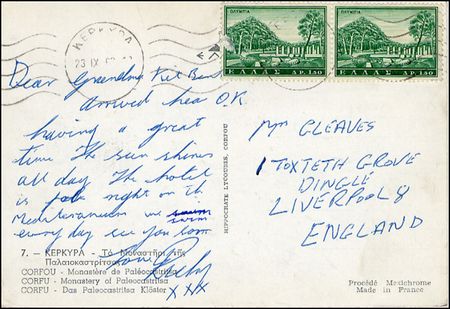 ΚΕΡΚΥΡΑ
23 IX
ΟΛΥΜΠΙΑ
ΕΛΛΑΣ ΔΡ. 1.50
ΟΛΥΜΠΙΑ
ΕΛΛΑΣ ΔΡ. 1.50
Dear Grandma
arrived OK.
having a great
time The sun shines
all day The hotel
is right on the
Mediterranean we swim
every day see you soon
love Richy
xxx
HIPPOCRATE LYCOUSES, CORFOU
Mr GLEAVES
1 TOXTETH GROVE
DINGLE
LIVERPOOL 8
ENGLAND
7. - ΚΕΡΚΥΡΑ - Τὸ Μοναστήρι τῆς
Παλαιοκαστρίτσας
CORFOU - Monastère de Paleocastritsa
CORFU - Monastery of Paleocastritsa
CORFU - Das Paleocastritsa Klöster
Procédé Mexichrome
Made in France